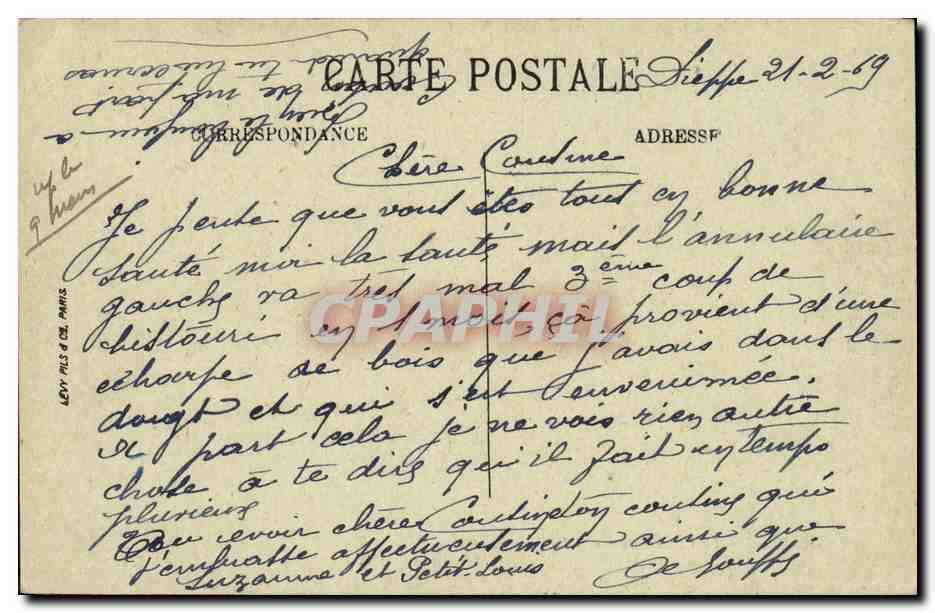 CARTE POSTALE
Dieppe 21-2-19
CORRESPONDANCE
ADRESSE
Chère Cousine
Je pense que vous êtes tous en bonne
santé, moi la santé, mais l'annulaire
gauche va très mal 3ème coup de
bistouri en 1 mois, ça provient d'une
écharpe de bois que j'avais dans le
doigt et qui s'est envenimée.
A part cela je ne vois rien autre
chose à te dire qu'il fait un temps
pluvieux
Au revoir chère Cousine ton cousin qui
t'embrasse affectueusement ainsi que
Suzanne et Petit-Louis
LEVY FILS & Cie, PARIS.
CPAPHIL